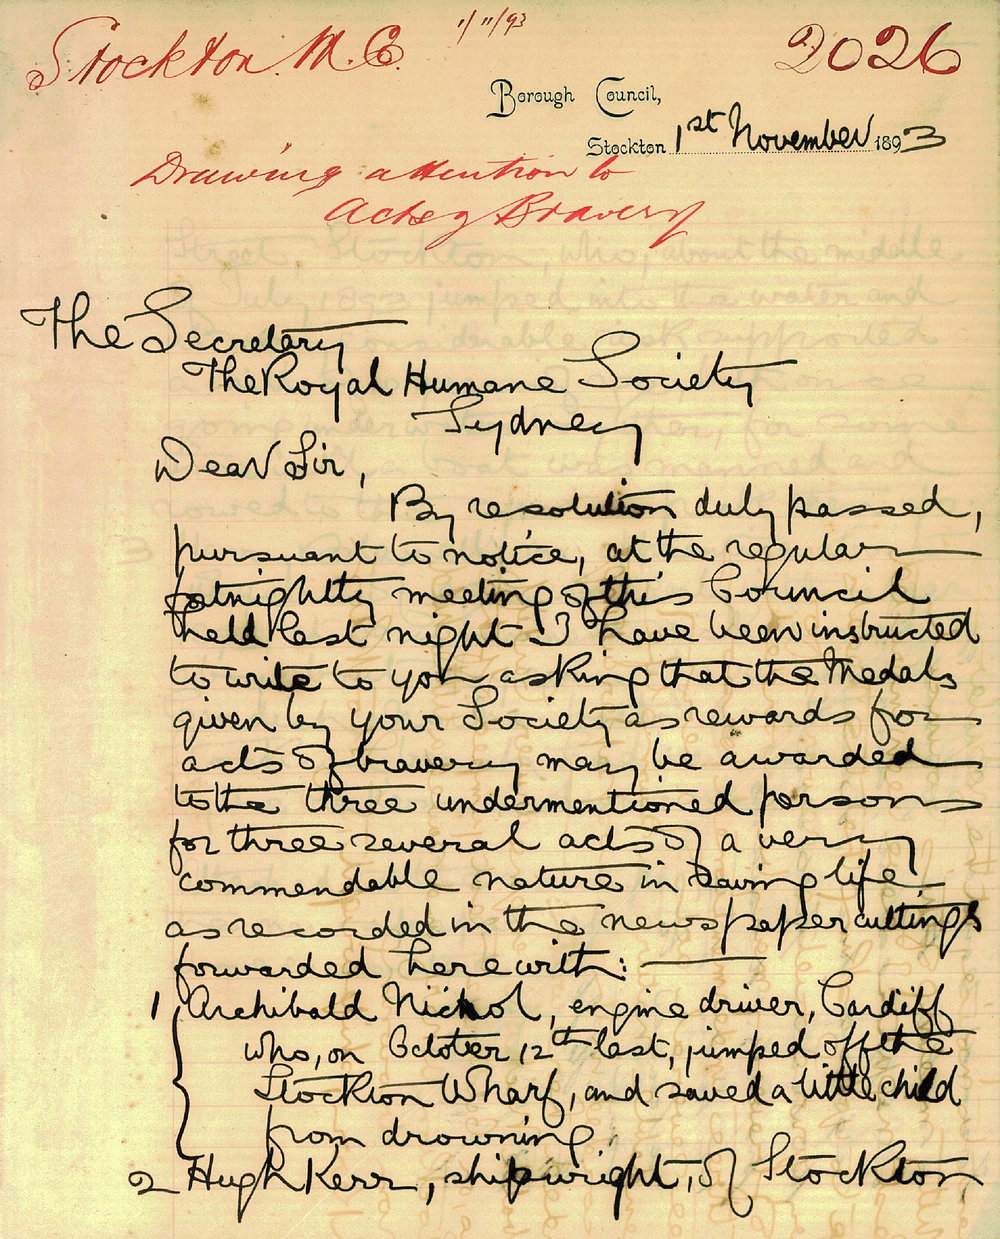 Stockton. M. C. 1/11/93 2026
Borough Council,
Stockton 1st November 1893
Drawing attention to
Acts of Bravery
The Secretary
The Royal Humane Society
Sydney
Dear Sir,
By resolution duly passed,
pursuant to notice, at the regular
fotnightly meeting of this Council
held last night I have been instructed
to write to you asking that the Medals
given by your Society as rewards for
acts of bravery may be awarded
to the three undermentioned persons
for three several acts of a very
commendable nature in saving life
as recorded in the newspaper cuttings
forwarded herewith: —
1 Archibald Nichol, engine driver, Cardiff
who, on October 12th last, jumped off the
Stockton Wharf, and saved a little child
from drowning.
2 Hugh Kerr, shipwright, of Stockton